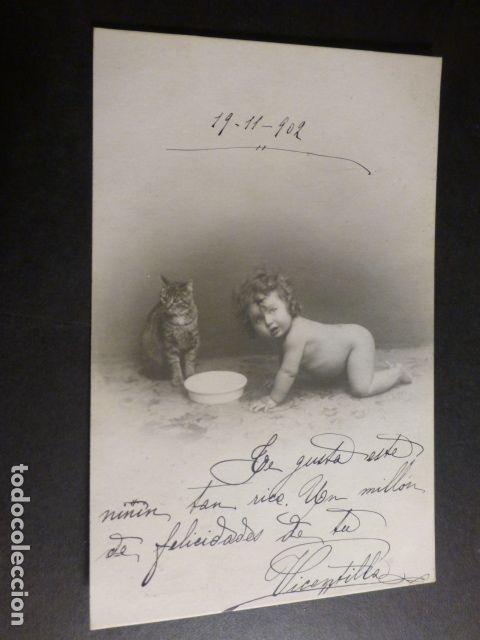 19-11-902
Te gusta este
niñin tan rico. Un millón
de felicidades de tu
Vicentilla
todocoleccion